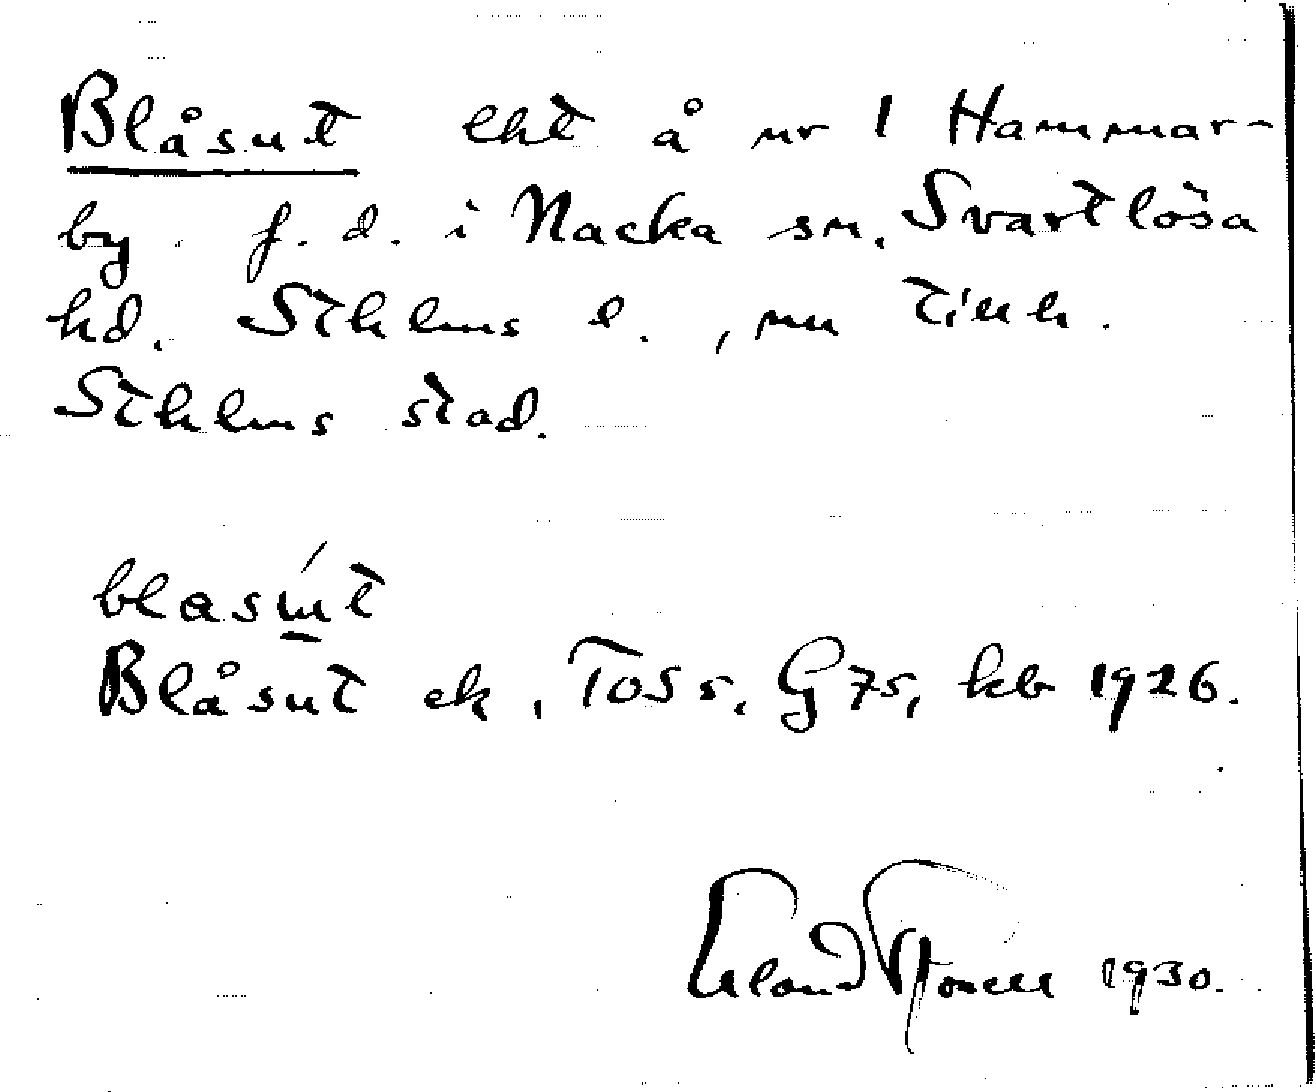 Blåsut lht å nr 1 Hammar-
by f. d. i Nacka sn, Svartlösa
hd. Sthlms l., nu tillh.
Sthlms stad.
blasú̱t
Blåsut ek, To5 s. G75, kb 1926.
Erland 1930.